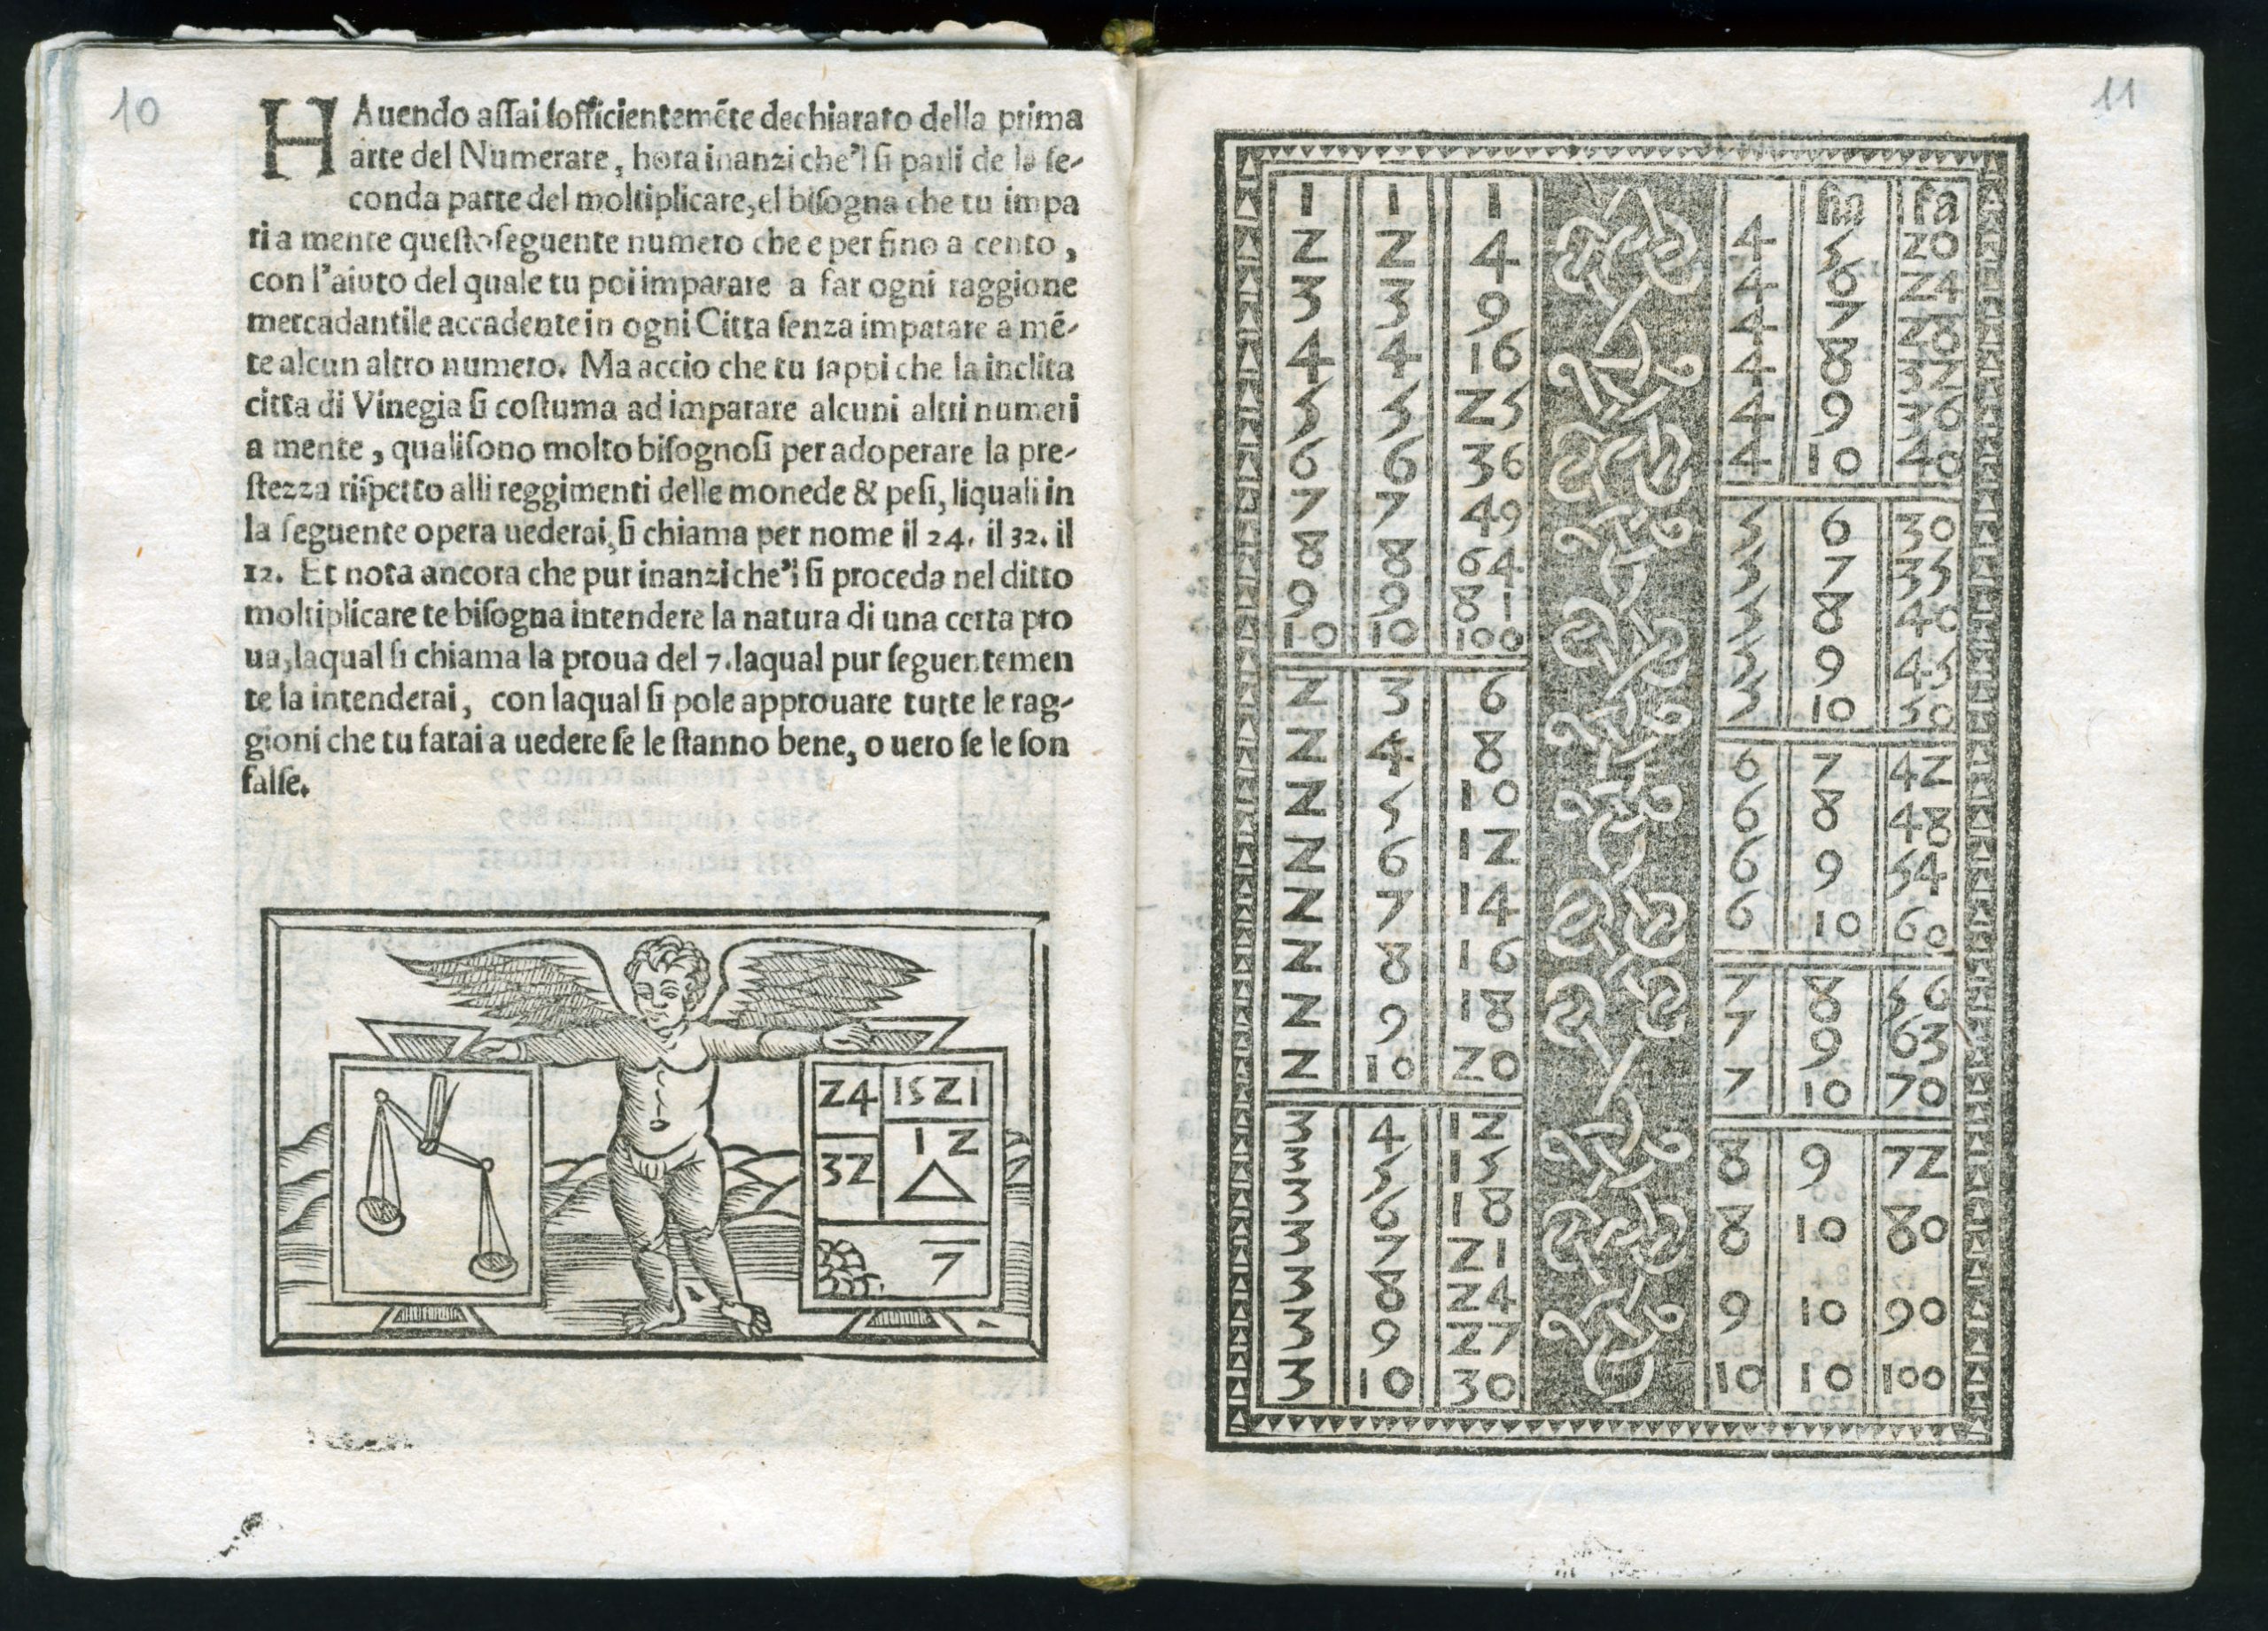 10
HAuendo assai sofficientemēte dechiarato della prima
arte del Numerare, hora inanzi che'l si parli de la se-
conda parte del moltiplicare, el bisogna che tu impa
ri a mente questo seguente numero che e per fino a cento,
con l'aiuto del quale tu poi imparare a far ogni raggione
mercadantile accadente in ogni Citta senza imparare a mē-
te alcun altro numero. Ma accio che tu sappi che la inclita
citta di Vinegia si costuma ad imparare alcuni altri numeri
a mente, quali sono molto bisognosi per adoperare la pre-
stezza rispetto alli reggimenti delle monede & pesi, liquali in
la seguente opera uederai, si chiama per nome il 24. il 32. il
12. Et nota ancora che pur inanzi che'l si proceda nel ditto
moltiplicare te bisogna intendere la natura di una certa pro
ua, laqual si chiama la proua del 7. laqual pur seguentemen
te la intenderai, con laqual si pole approuare tutte le rag-
gioni che tu farai a uedere se le stanno bene, o uero se le son
false.
24 1521
32 12
7
11
1 1 1
2 2 4
3 3 9
4 4 16
5 5 25
6 6 36
7 7 49
8 8 64
9 9 81
10 10 100
2 3 6
2 4 8
2 5 10
2 6 12
2 7 14
2 8 16
2 9 18
2 10 20
3 4 12
3 5 15
3 6 18
3 7 21
3 8 24
3 9 27
3 10 30
fia fa
4 5 20
4 6 24
4 7 28
4 8 32
4 9 36
4 10 40
5 6 30
5 7 35
5 8 40
5 9 45
5 10 50
6 7 42
6 8 48
6 9 54
6 10 60
7 8 56
7 9 63
7 10 70
8 9 72
8 10 80
9 10 90
10 10 100